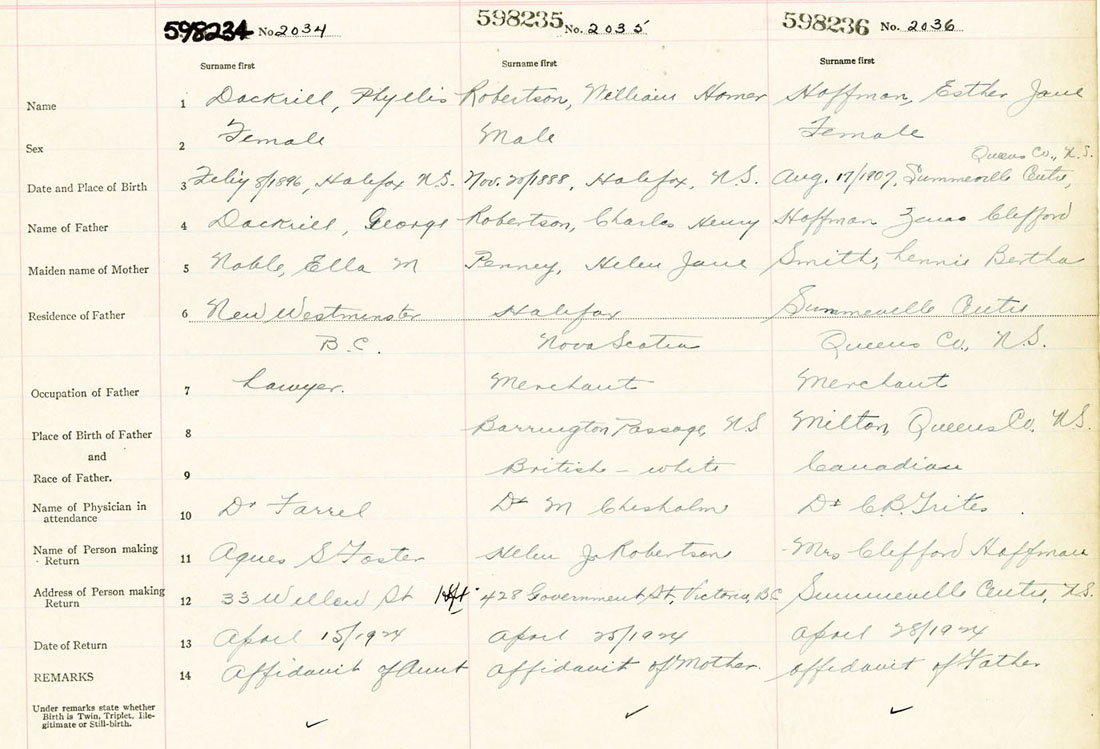 598234 No. 2034 598235 No. 2035 598236 No. 2036
Surname first Surname first Surname first
Name 1 Dockrill, Phyllis Robertson, William Homer Hoffman, Esther Jane
Sex 2 Female Male Female
Queens Co., N.S.
Date and Place of Birth 3 8/1896, Halifax N.S. Nov. 20/1888, Halifax, N.S. Aug. 17/1907, Summerville Centre,
Name of Father 4 Dockrill, George Robertson, Charles Henry Hoffman Zenas Clifford
Maiden name of Mother 5 Noble, Ella M Penney, Helen Jane Smith, Lennie Bertha
Residence of Father 6 New Westminster Halifax Summerville Centre
B.C. Nova Scotia Queens Co., N.S.
Occupation of Father 7 Lawyer. Merchant Merchant
Place of Birth of Father 8 Barrington Passage, N.S Milton, Queens Co, N.S.
and
Race of Father. 9 British - white Canadian
Name of Physician in
attendance 10 Dr Farrel Dr M Chisholm Dr C.B. Trites
Name of Person making
Return 11 Agnes S Foster Helen J. Robertson Mrs Clifford Hoffman
Address of Person making
Return 12 33 Willow St Hfx. 428 Government St, Victoria, B.C Summerville Centre, N.S.
Date of Return 13 April 15/1924 April 25/1924 April 28/1924
REMARKS 14 Affidavit of Aunt Affidavit of Mother. Affidavit of Father
Under remarks state whether
Birth is Twin, Triplet, Ille-
gitimate or Still-birth.